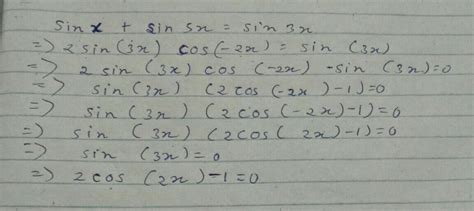 sin x + sin 5x = sin 3x
=> 2 sin (3x) cos(-2x) = sin (3x)
=> 2 sin (3x) cos (-2x) -sin (3x)=0
=> sin (3x) (2 cos (-2x)-1)=0
=> sin (3x) (2 cos (-2x)-1)=0
=> sin (3x) (2 cos( 2x)-1)=0
=> sin (3x)=0
=> 2 cos (2x)-1=0